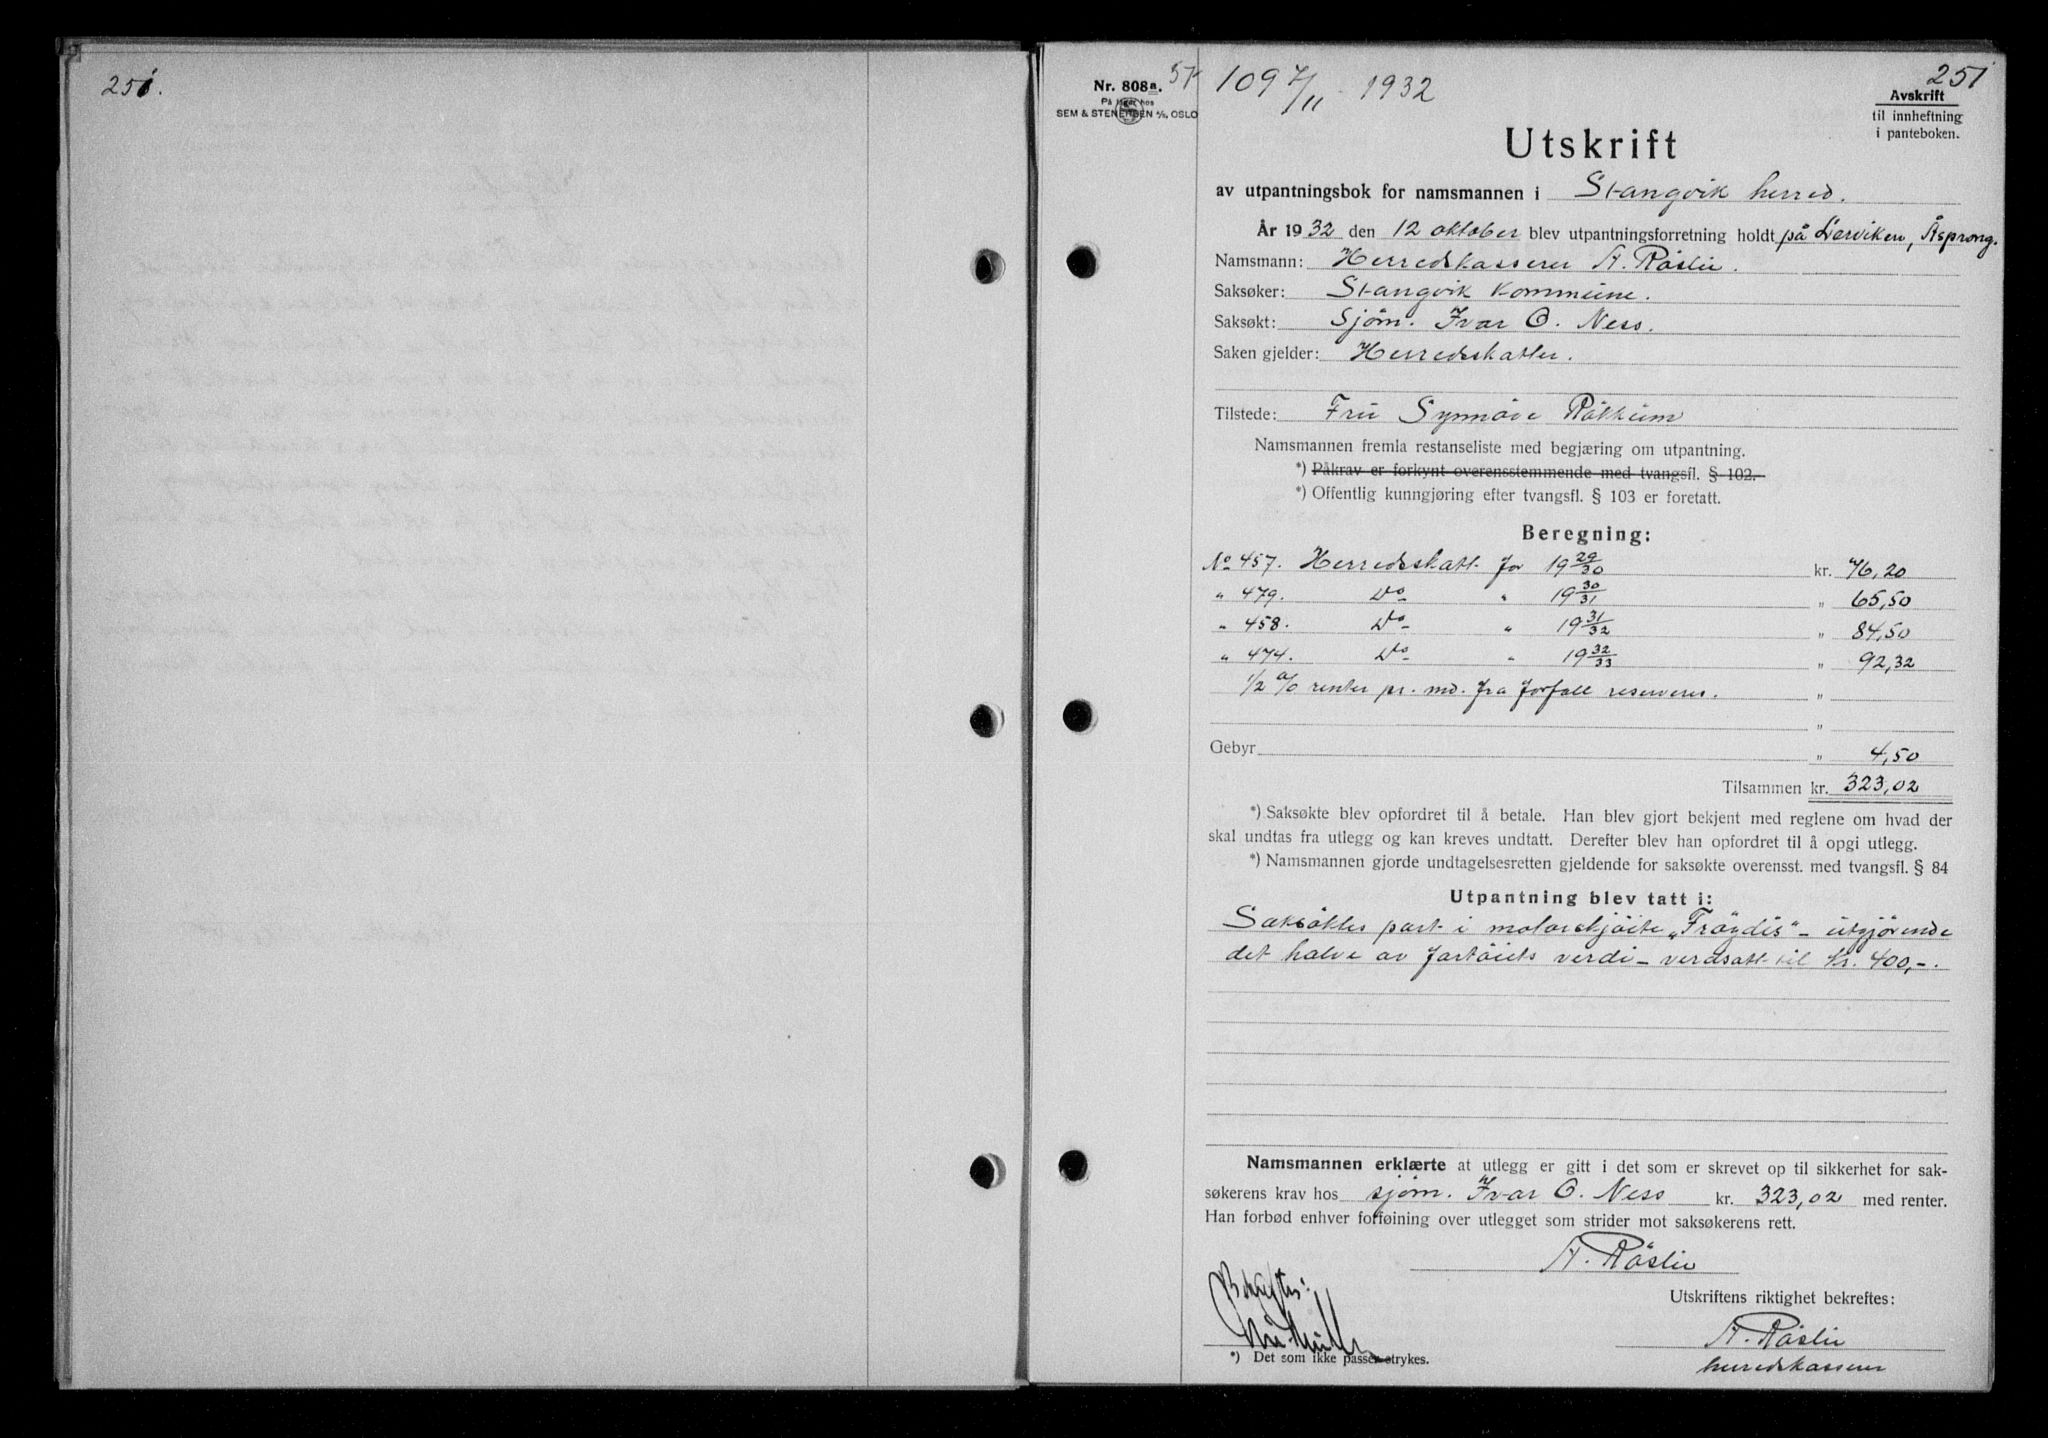 251.
251
Nr. 808a.
På lager hos
SEM & STENERSEN A/S, OSLO
1097/11 - 1932
Avskrift
til innheftning
i panteboken.
Utskrift
av utpantningsbok for namsmannen i Stangvik herred.
År 1932 den 12 oktober blev utpantningsforretning holdt på Lerviken, Åsprong.
Namsmann: Herredskasserer A. Röslie.
Saksøker: Stangvik Kommune.
Saksøkt: Sjöm. Ivar O. Ness.
Saken gjelder: Herredskatter.
Tilstede: Fru Synnöve Rökkum
Namsmannen fremla restanseliste med begjæring om utpantning.
*) Påkrav er forkynt overensstemmende med tvangsfl. § 102.
*) Offentlig kunngjøring efter tvangsfl. § 103 er foretatt.
Beregning:
No 457. Herredskatt for 1929/30 kr. 76,20
" 479. Do " 1930/31 " 65,50
" 458. Do " 1931/32 " 84,50
" 474. Do " 1932/33 " 92,32
1/2 % renter pr. md. fra forfall reserveres. "
"
Gebyr " 4,50
Tilsammen kr. 323,02
*) Saksøkte blev opfordret til å betale. Han blev gjort bekjent med reglene om hvad der
skal undtas fra utlegg og kan kreves undtatt. Derefter blev han opfordret til å opgi utlegg.
*) Namsmannen gjorde undtagelsesretten gjeldende for saksøkte overensst. med tvangsfl. § 84
Utpantning blev tatt i:
Saksöktes part i motorskjöite „Fröydis" - utgjörende
det halve av fartöiets verdi - verdsatt til Kr. 400,-.
Namsmannen erklærte at utlegg er gitt i det som er skrevet op til sikkerhet for sak-
søkerens krav hos sjöm. Ivar O. Ness kr. 323,02 med renter.
Han forbød enhver forføining over utlegget som strider mot saksøkerens rett.
A. Röslie
Bekreftes:
Utskriftens riktighet bekreftes:
A. Röslie
herredskasserer
*) Det som ikke passer strykes.